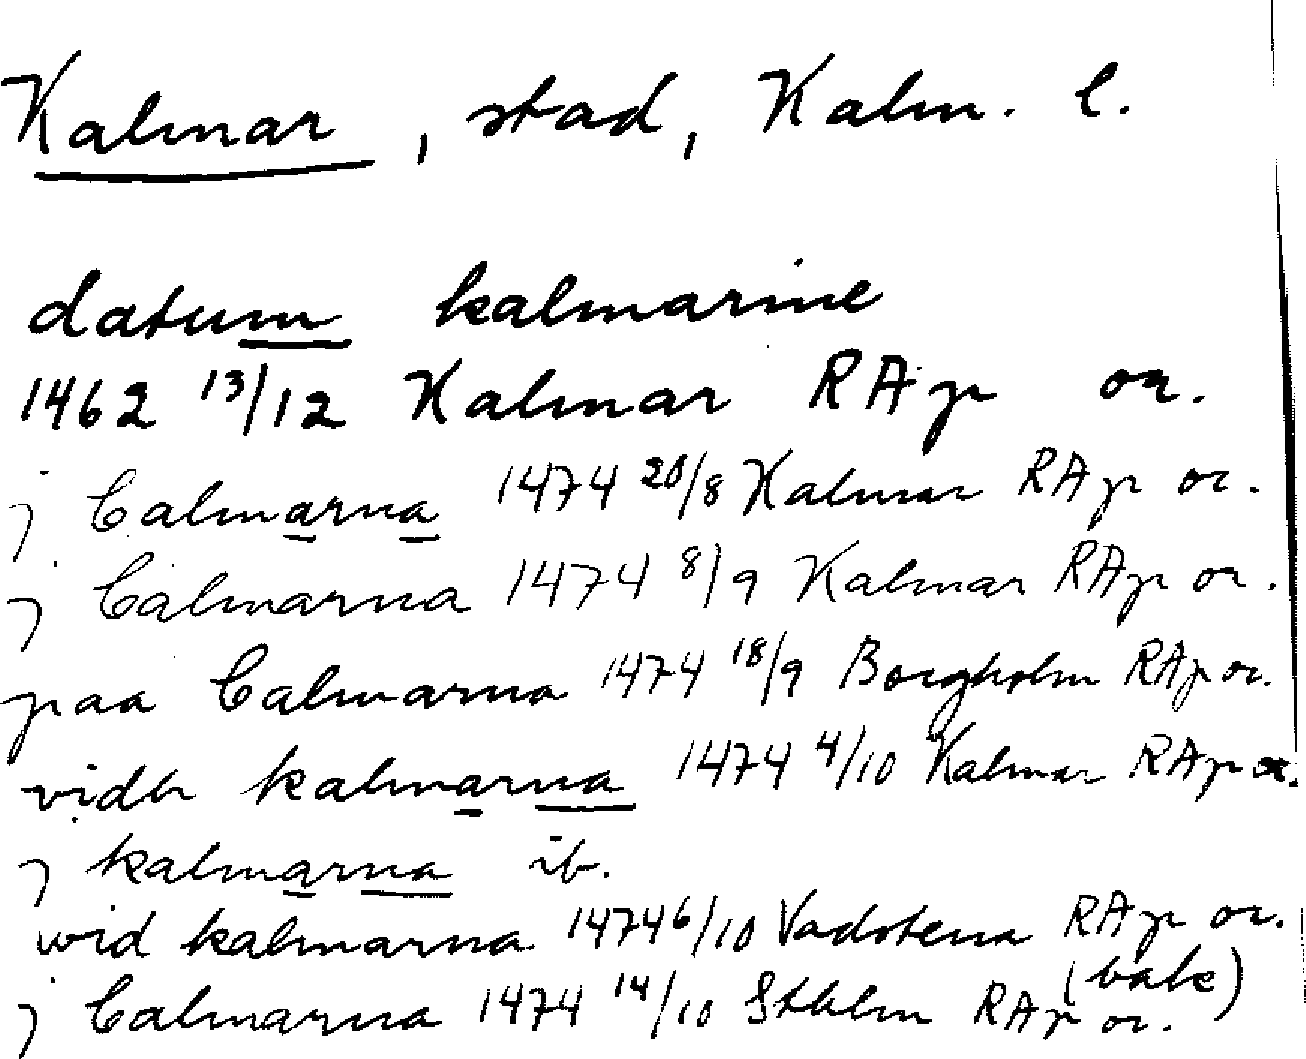 Kalmar, stad, Kalm. l.
datum kalmarine
1462 13/12 Kalmar RAp or.
j Calmarna 1474 20/8 Kalmar RAp or.
j Calmarna 1474 8/9 Kalmar RAp or.
paa Calmarna 1474 18/9 Borgholm RAp or.
vidh kalmarna 1474 4/10 Kalmar RAp or.
j kalmarna ib.
wid kalmarna 1474 6/10 Vadstena RAp or.
j Calmarna 1474 14/10 Sthlm RAp or. (bake)